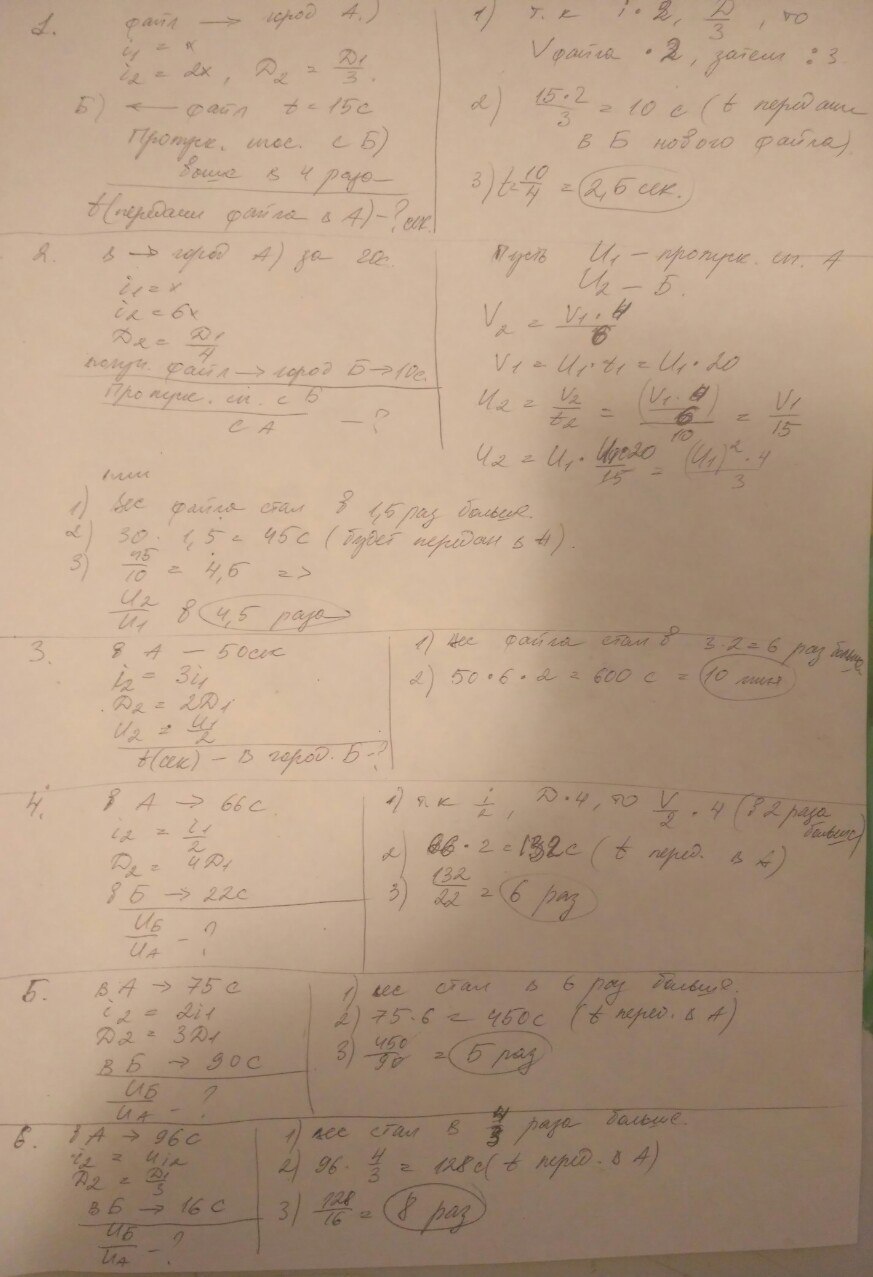 1. файл → город А.)
i1 = x
i2 = 2x, D2 = D1/3.
Б) ← файл t = 15 с
Пропуск. спос. с Б)
выше в 4 раза
t (передачи файла в А) - ? сек.
1) т.к i·2, D/3, то
V файла · 2, затем : 3
2) 15·2/3 = 10 с (t передачи
в Б нового файла)
3) t = 10/4 = 2,5 сек.
2. в → город А) за 20с.
i1 = x
i2 = 6x
D2 = D1/4
файл → город Б → 10с.
Пропуск. сп. с Б
с А - ?
Пусть U1 - пропуск. сп. А
U2 - Б.
V2 = V1·4/6
V1 = U1·t1 = U1·20
U2 = V2/t2 = (V1·4/6)/10 = V1/15
U2 = U1·U1·20/15 = (U1)²·4/3
или
1) Вес файла стал в 1,5 раз больше.
2) 30·1,5 = 45с (будет передан в А).
3) 45/10 = 4,5 =>
U2/U1 в 4,5 раза
3. в А - 50сек
i2 = 3i1
D2 = 2D1
U2 = U1/2
t(сек) - в город. Б - ?
1) Вес файла стал в 3·2=6 раз больше.
2) 50·6·2 = 600 с = 10 мин
4. в А → 66с
i2 = i1/2
D2 = 4D1
в Б → 22с
UБ/UА - ?
1) т.к i/2, D·4, то V/2·4 (в 2 раза
больше)
2) 66·2 = 132с (t перед. в А)
3) 132/22 = 6 раз
5. в А → 75 с
i2 = 2i1
D2 = 3D1
в Б → 90с
UБ/UА - ?
1) Вес стал в 6 раз больше.
2) 75·6 = 450с (t перед. в А)
3) 450/90 = 5 раз
6. в А → 96с
i2 = 4i2
D2 = D1/3
в Б → 16 с
UБ/UА - ?
1) Вес стал в 4/3 раза больше.
2) 96·4/3 = 128с( t перед. в А)
3) 128/16 = 8 раз